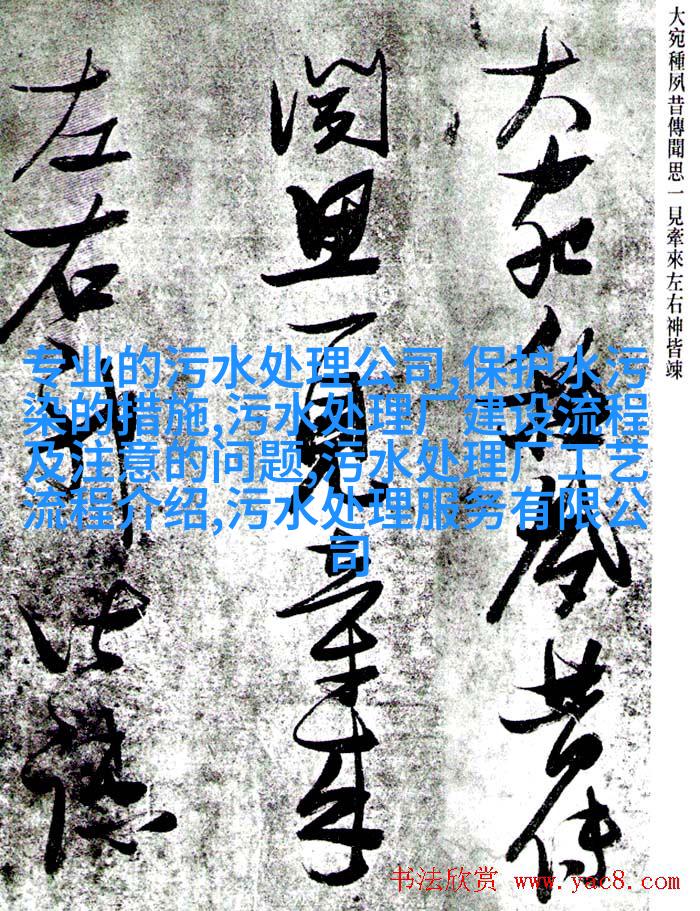 大宛種夙昔傳聞思一見牽來左右神皆竦
大宛種夙昔傳
聞思一見牽來
左右神皆竦
专业的污水处理公司,保护水污
染的措施,污水处理厂建设流程
及注意的问题,污水处理厂工艺
流程介绍,污水处理服务有限公
司
书法欣赏 www.yac8.com